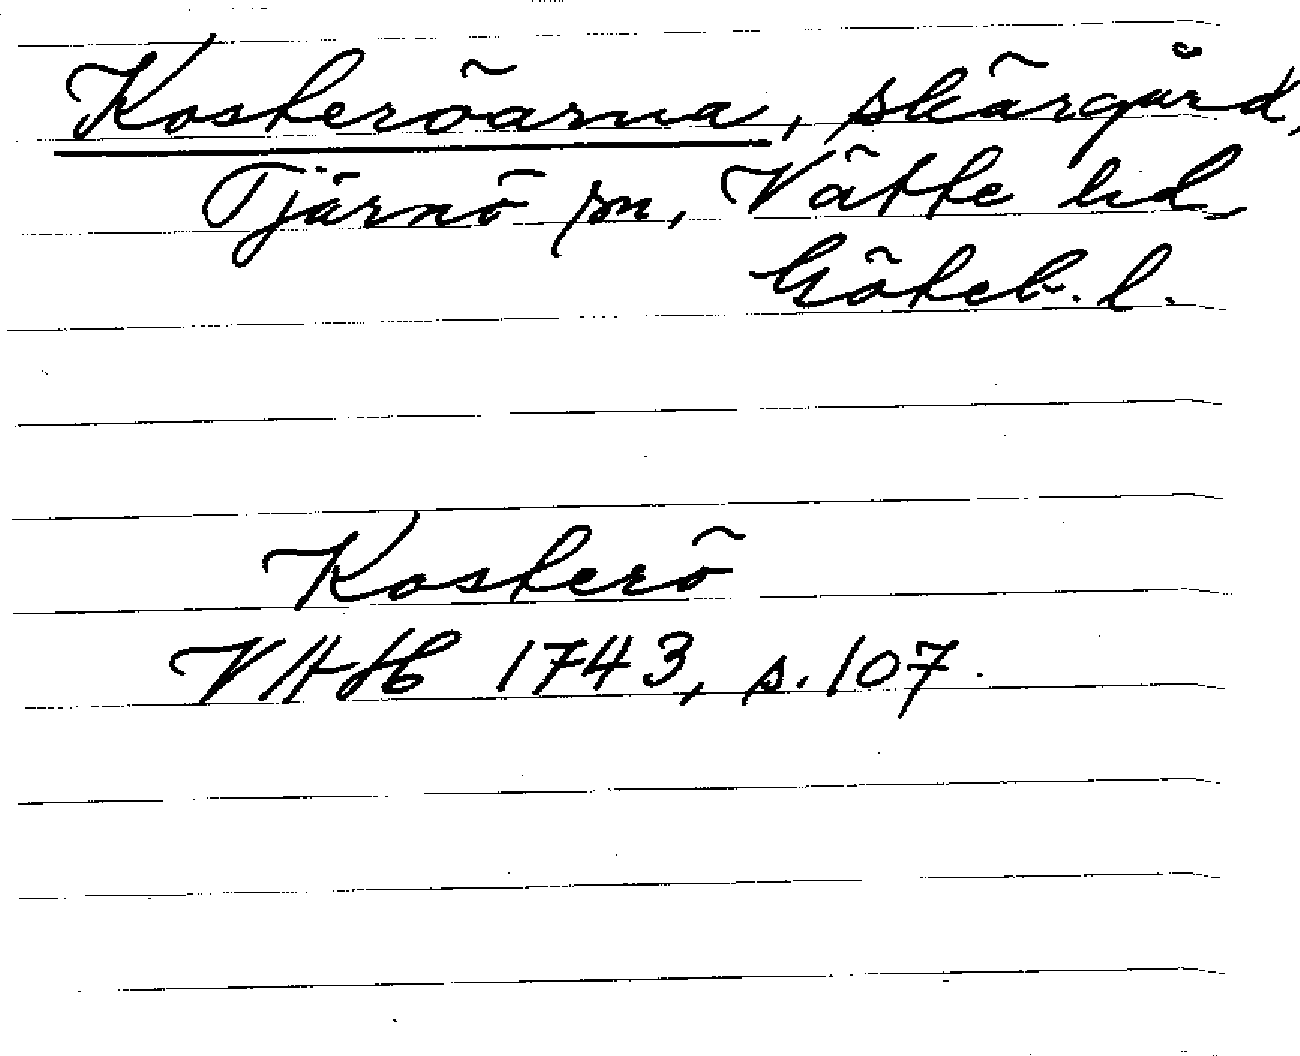 Kosteröarna, skärgård,
Tjärnö sn, Vätte hd,
Göteb. l.
Kosterö
VAH 1743, s. 107.